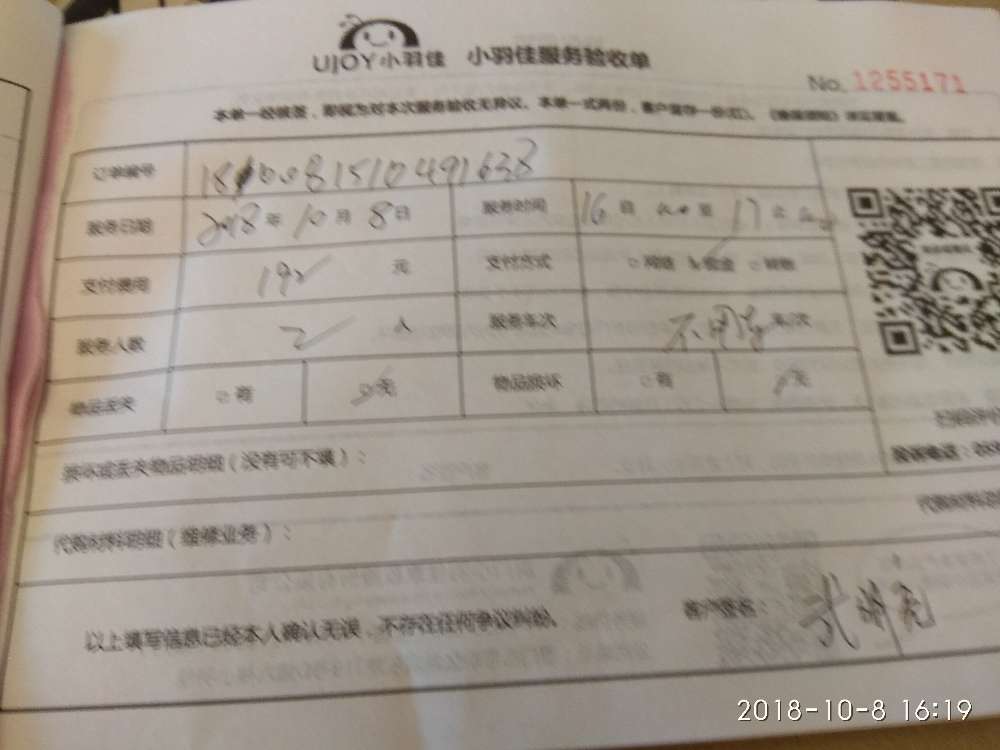 UJOY小羽佳 小羽佳服务验收单
No. 1255171
本单一经核签,即视为对本次服务验收无异议。本单一式两份,客户留存一份
订单编号 1810081510491638
服务日期 2018年10月8日 服务时间 16点 至 17点
支付费用 元 支付方式 网络 现金
服务人数 2 人 服务车次 车/次
物品丢失 有 无 物品损坏 有 无
损坏或丢失物品明细(没有可不填):
代购材料明细(维修业务):
以上填写信息已经本人确认无误,不存在任何争议纠纷。 客户签名:
2018-10-8 16:19